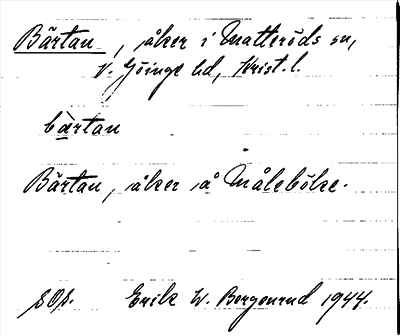 Bärtan, åker i Matteröds sn,
V. Göinge hd, Krist. l.
bärtan
Bärtan, åker å Måleböke.
SOS. Erik W. Bergenrud 1944.